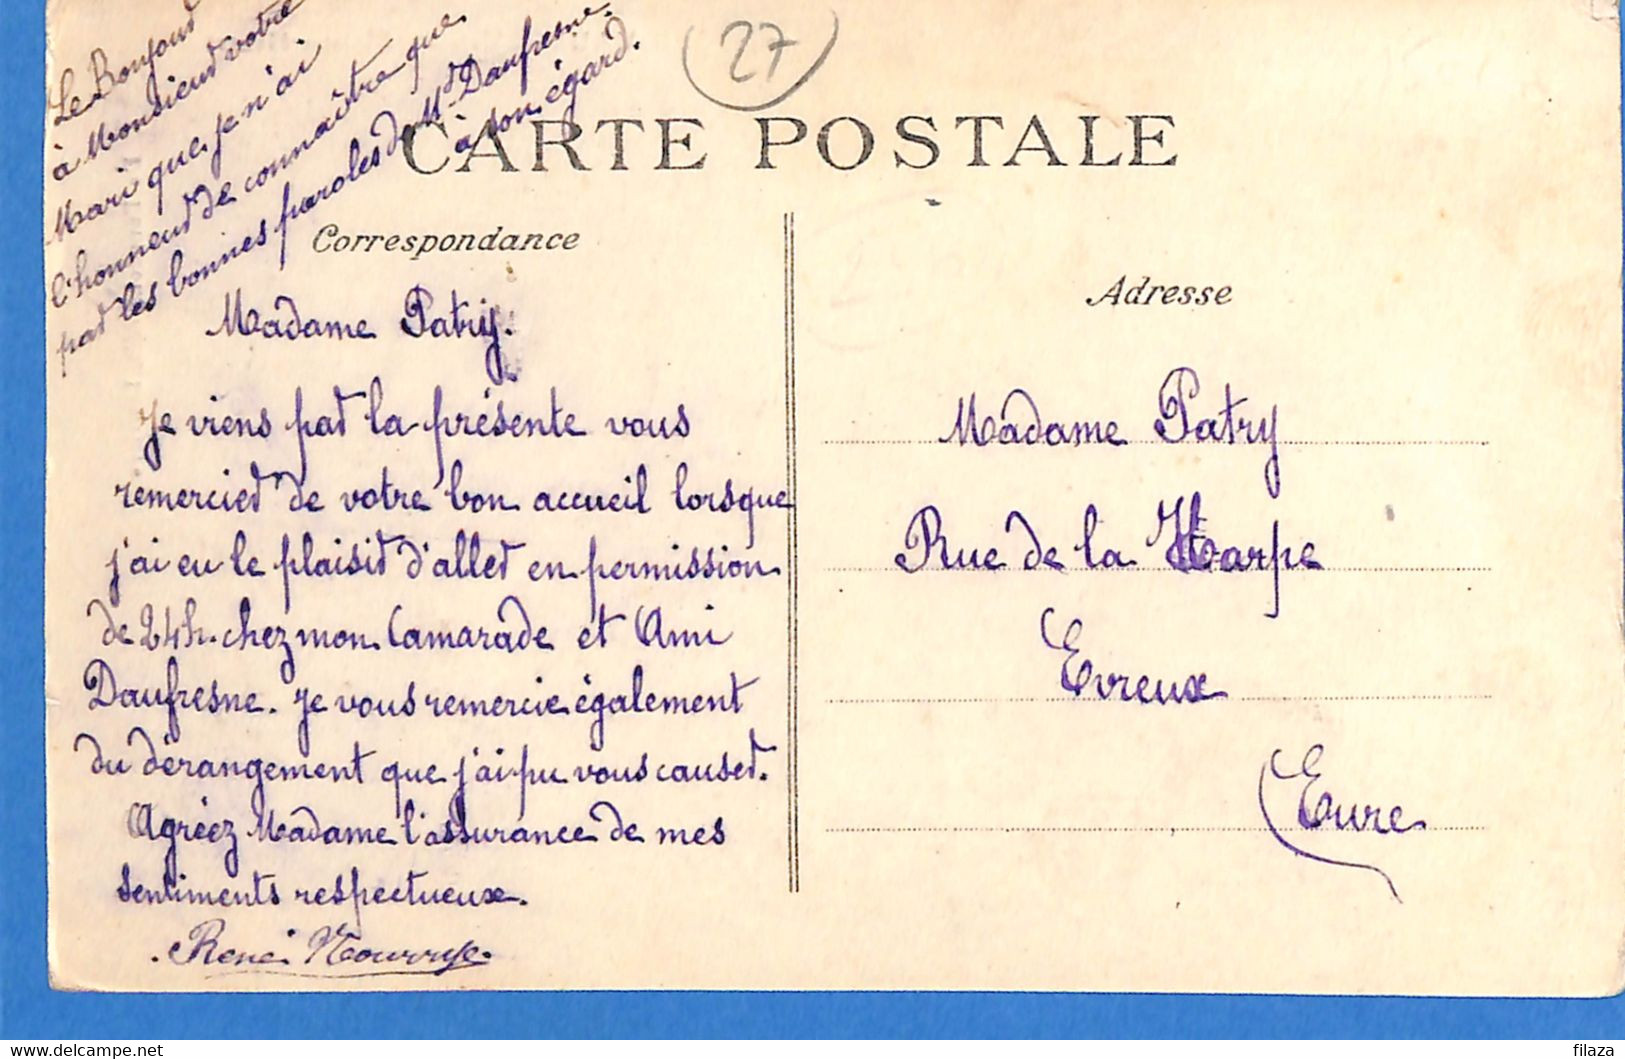 27
Le Bonjour
à Monsieur votre
Mari que je n'ai
l'honneur de connaître que
par les bonnes paroles de Md Daufresne.
à son égard.
CARTE POSTALE
Correspondance
Adresse
Madame Patry.
Je viens par la présente vous
remercier de votre bon accueil lorsque
j'ai eu le plaisir d'aller en permission
de 24h. chez mon Camarade et Ami
Daufresne. Je vous remercie également
du dérangement que j'ai pu vous causer.
Agréez Madame l'assurance de mes
sentiments respectueux.
René
Madame Patry
Rue de la Harpe
Evreux
(Eure
https://www.delcampe.net
filaza